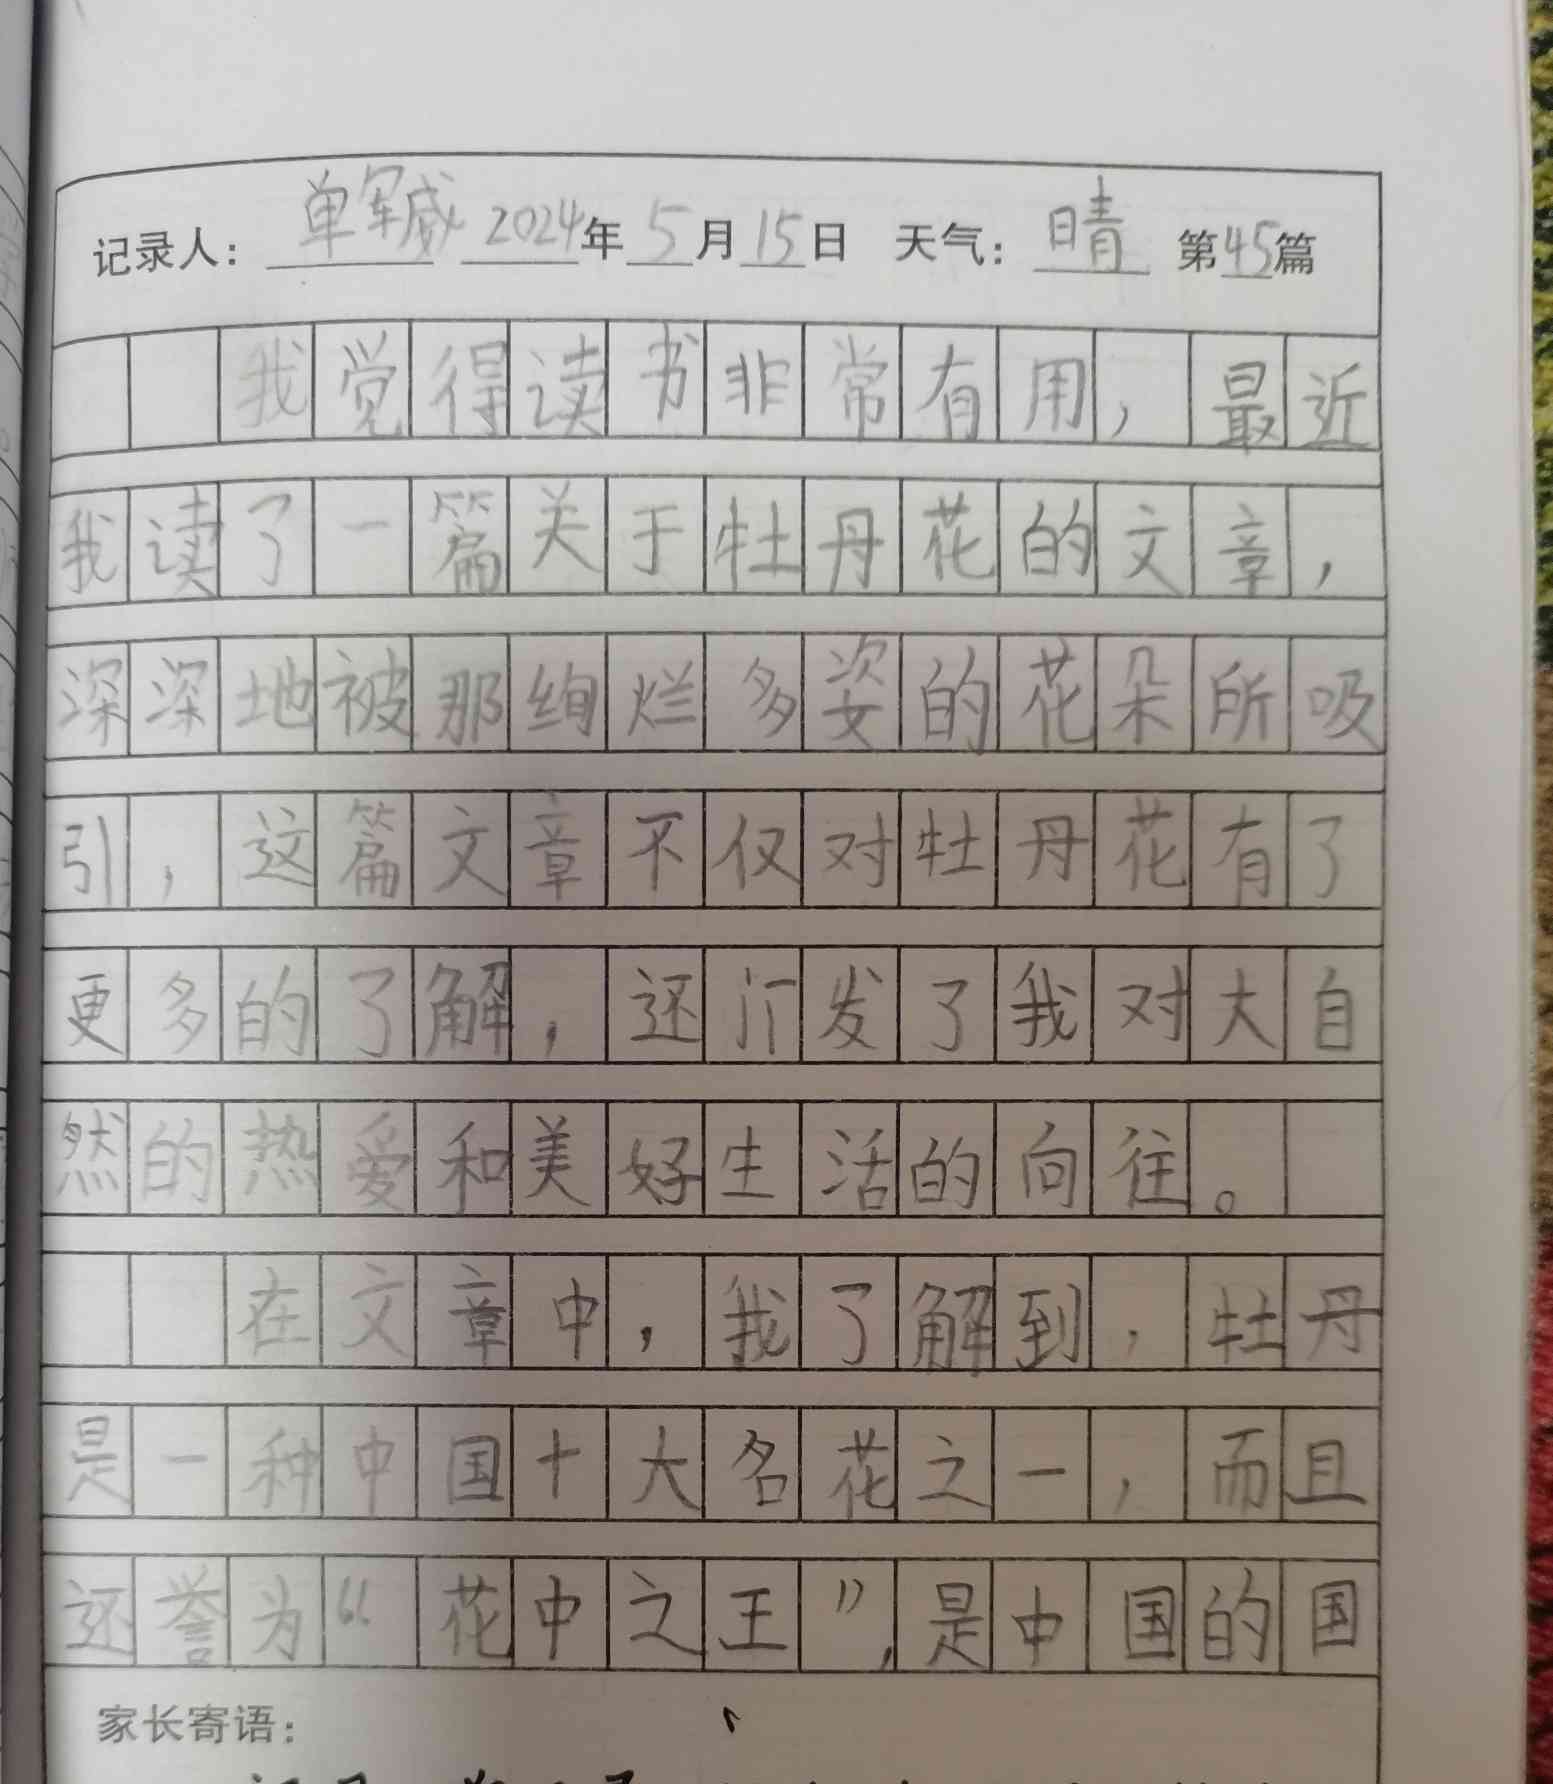 记录人：单军威 2024年5月15日 天气：晴 第45篇
我觉得读书非常有用，最近
我读了一篇关于牡丹花的文章，
深深地被那绚烂多姿的花朵所吸
引，这篇文章不仅对牡丹花有了
更多的了解，还发了我对大自
然的热爱和美好生活的向往。
在文章中，我了解到，牡丹
是一种中国十大名花之一，而且
还誉为“花中之王”，是中国的国
家长寄语：